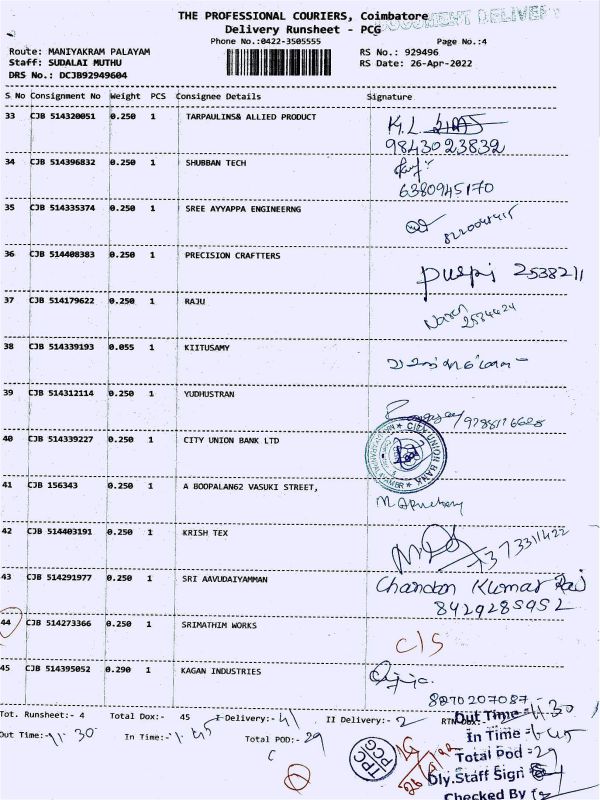 THE PROFESSIONAL COURIERS, Coimbatore
DOCUMENT DELIVERY
Delivery Runsheet - PCG
Phone No.:0422-3505555
Page No.:4
Route: MANIYAKRAM PALAYAM
RS No.: 929496
Staff: SUDALAI MUTHU
RS Date: 26-Apr-2022
DRS No.: DCJB92949604
S No Consignment No Weight PCS Consignee Details Signature
33 CJB 514320051 0.250 1 TARPAULINS& ALLIED PRODUCT K.L.
9843023832
34 CJB 514396832 0.250 1 SHUBBAN TECH
6380945170
35 CJB 514335374 0.250 1 SREE AYYAPPA ENGINEERNG
36 CJB 514408383 0.250 1 PRECISION CRAFTTERS 2538211
37 CJB 514179622 0.250 1 RAJU
2534424
38 CJB 514339193 0.055 1 KIITUSAMY
39 CJB 514312114 0.250 1 YUDHUSTRAN
40 CJB 514339227 0.250 1 CITY UNION BANK LTD CITY UNION BANK
41 CJB 156343 0.250 1 A BOOPALAN62 VASUKI STREET,
42 CJB 514403191 0.250 1 KRISH TEX
43 CJB 514291977 0.250 1 SRI AAVUDAIYAMMAN Chandan Kumar Rai
8429285952
44 CJB 514273366 0.250 1 SRIMATHIM WORKS C/S
45 CJB 514395052 0.290 1 KAGAN INDUSTRIES
8270207087
Tot. Runsheet:- 4 Total Dox:- 45 I Delivery:- 41 II Delivery:- 2 RTN Dox:-
Out Time:- 11.30 In Time:- 1.45 Total POD:- 29
Out Time - 11.30
In Time - 1.45
Total Pod - 29
Dly.Staff Sign
Checked By
TPC
PCG